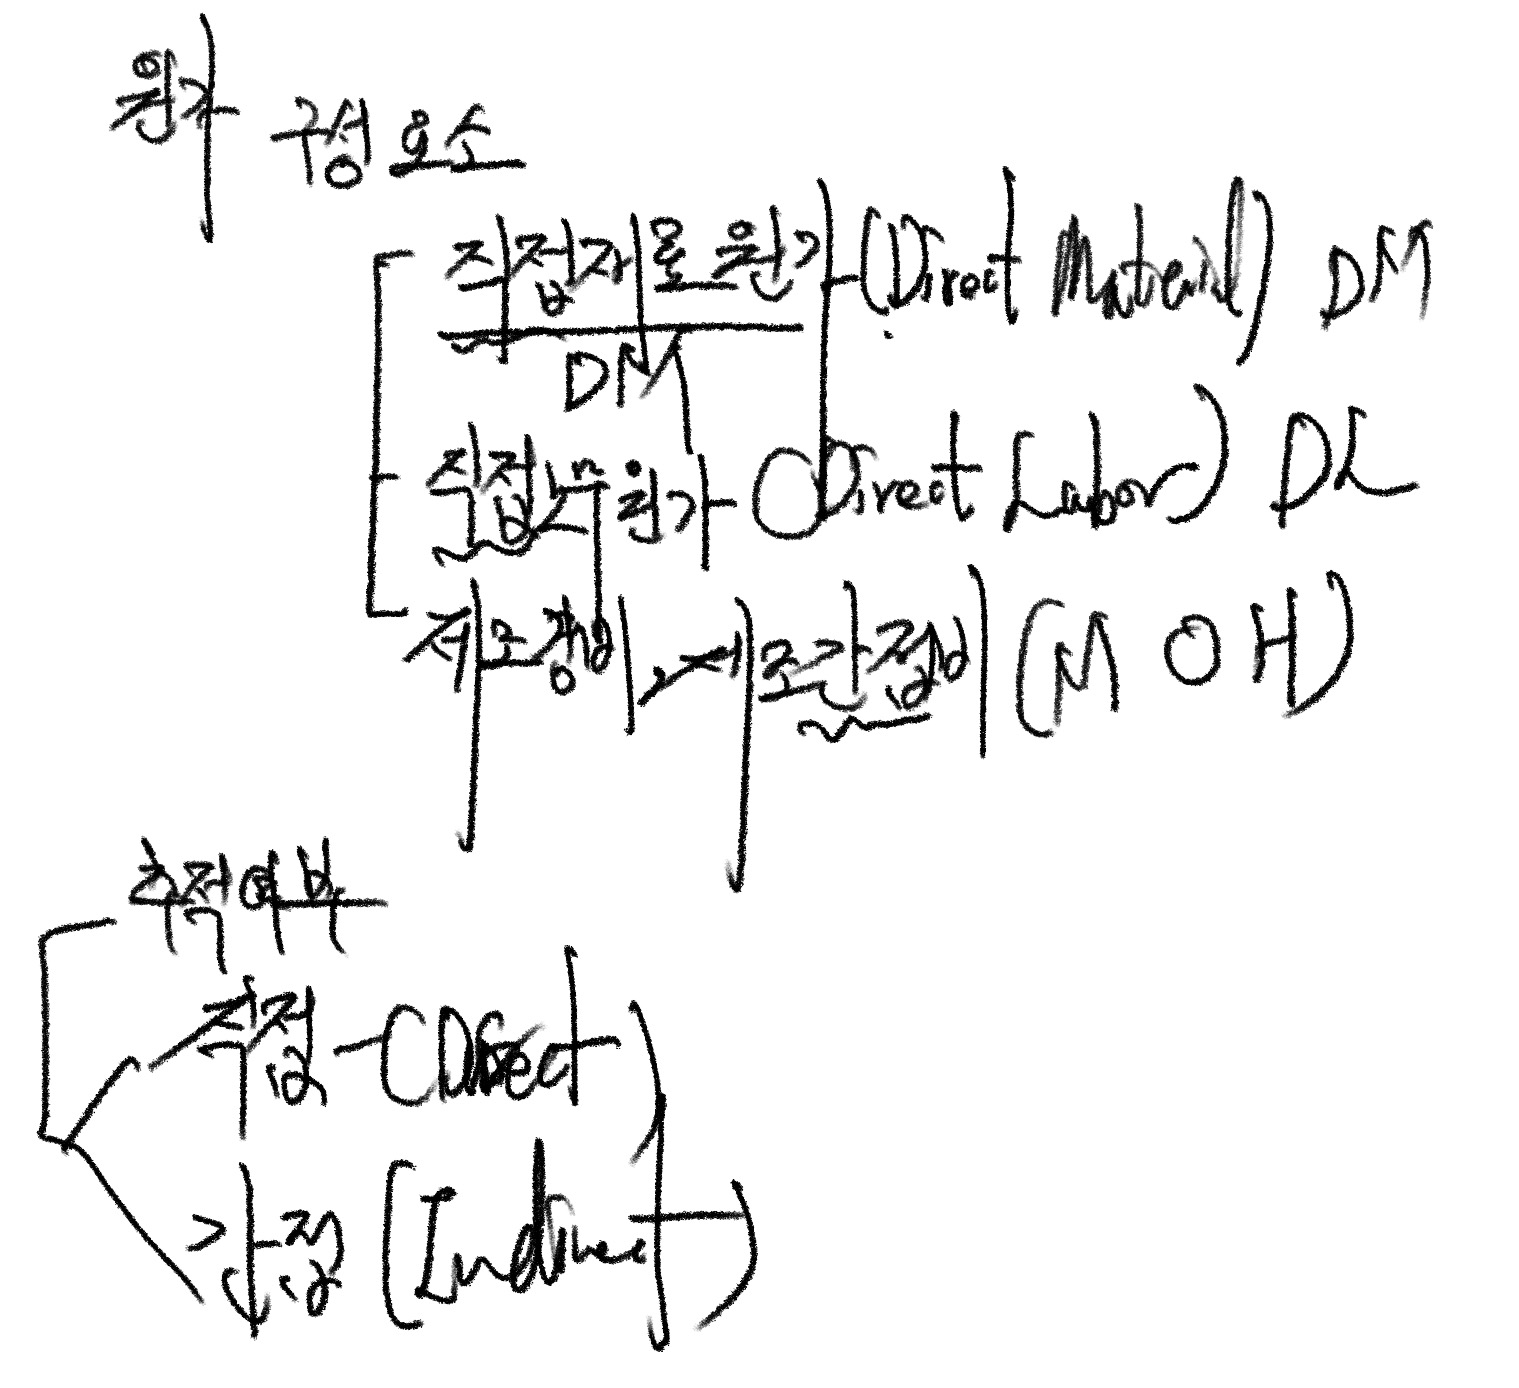 원가
구성요소
직접재료원가 (Direct Material) DM
DM
직접노무원가 (Direct Labor) DL
제조경비, 제조간접비 (MOH)
추적여부
직접 - (Direct)
간접 (Indirect)